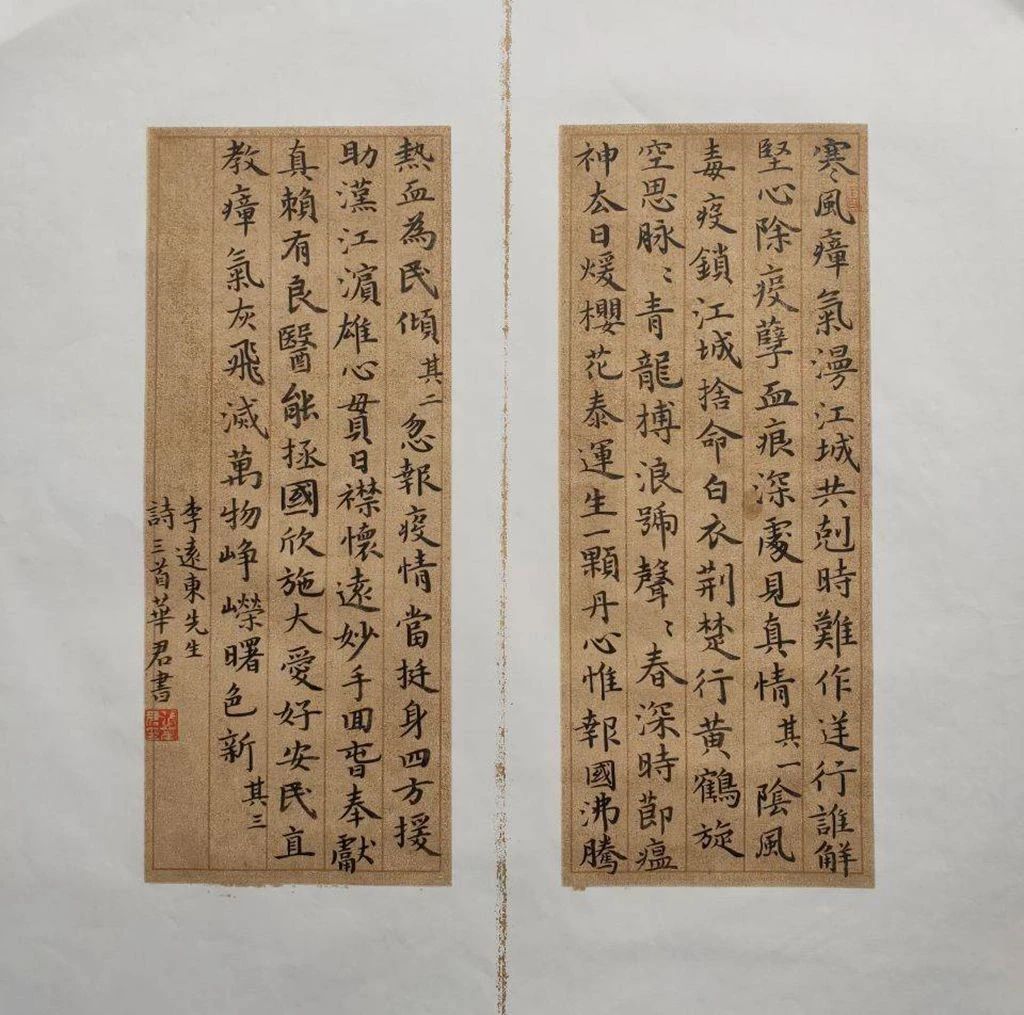 寒〻風瘴氣漫江城共剋時難作逆行誰解
堅心除疫孽血痕深處見真情其一陰風
毒疫鎖江城捨命白衣荆楚行黄鶴旋
空思脉〻青龍搏浪號聲〻春深時節瘟
神去日煖櫻花泰運生一顆丹心惟報國沸騰
熱血為民傾其二忽報疫情當挺身四方援
助漢江濱雄心貫日襟懷遠妙手回春奉獻
真賴有良醫能拯國欣施大愛好安民直
教瘴氣灰飛滅萬物崢嶸曙色新其三
李遠東先生
詩三首華君書